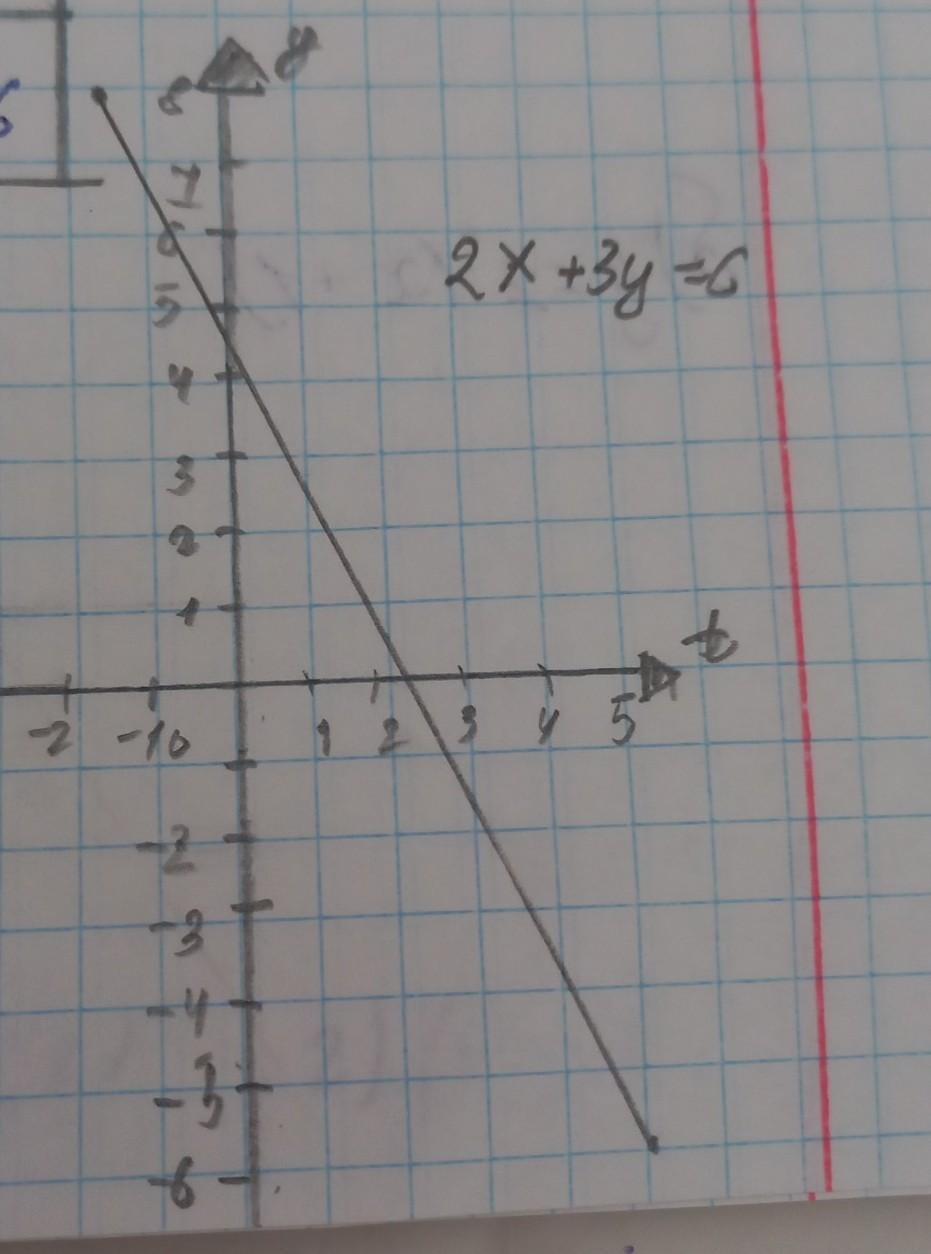 6
y
8
7
6
5
2x+3y=6
4
3
2
1
t
-2 -1 0 1 2 3 4 5
-2
-3
-4
-5
-6